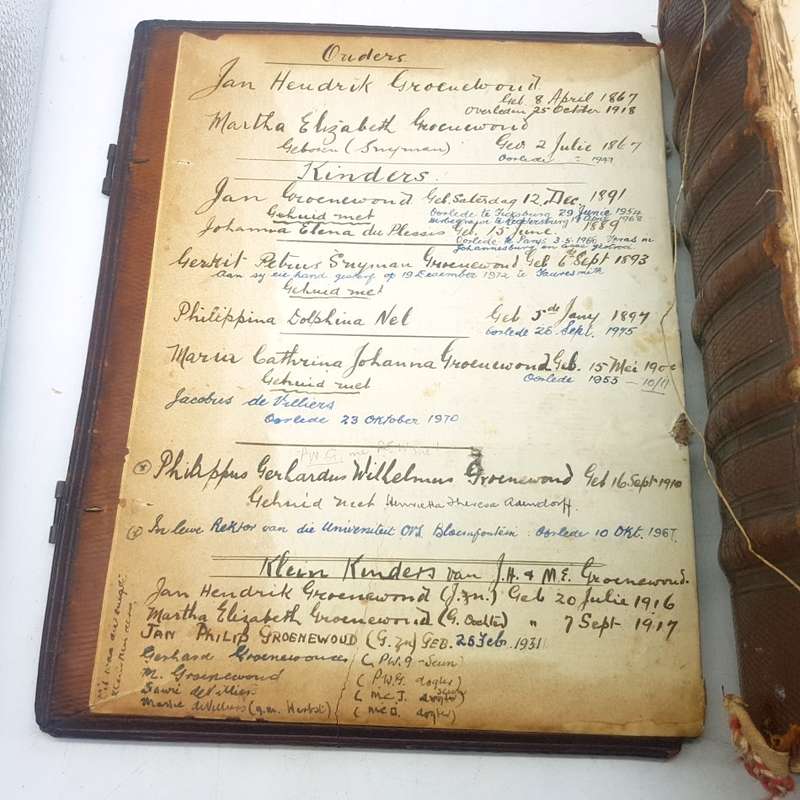 Ouders
Jan Hendrik Groenewoud
Geb. 8 April 1867
Overleden 25 October 1918
Martha Elizabeth Groenewoud
Geboren (Snyman) Geb 2 Julie 1867
Oorlede
Kinders
Jan Groenewoud Geb. Saterdag 12 Dec. 1891
Gehuid met Oorlede te Ficksburg 29 Junie 1954
Johanna Elena du Plessis Geb. 15 June 1889
Oorlede te 3.5.1966
Johannesburg en
Gerrit Petrus Snyman Groenewoud Geb 6 Sept 1893
Aan sy eie hand gesterf op 19 Desember 1972 te Fauresmith
Gehuid met
Philippina Dolphina Nel Geb 5de Jany 1897
Oorlede 26 Sept. 1975
Maria Cathrina Johanna Groenewoud Geb. 15 Mei 190
Gehuid met Oorlede 1955 – 10/11
Jacobus de Villiers
Oorlede 23 Oktober 1970
Philippus Gerhardus Wilhelmus Groenewoud Geb 16 Sept 1910
Gehuid met Henrietta Theresa
In lewe Rektor van die Universiteit OVS Bloemfontein. Oorlede 10 Okt. 1967.
Klein Kinders van J.H. & M.E. Groenewoud.
Jan Hendrik Groenewoud (J. zn.) Geb 20 Julie 1916
Martha Elizabeth Groenewoud (G. Dochter) " 7 Sept 1917
JAN PHILIP GROENEWOUD (G. zn) GEB. 25 Feb. 1931
Gerhard Groenewoud (P.W.G – Seun)
M. Groenewoud (P.W.G. dogter)
de Villiers (M.C.J.
de Villiers (dogter)